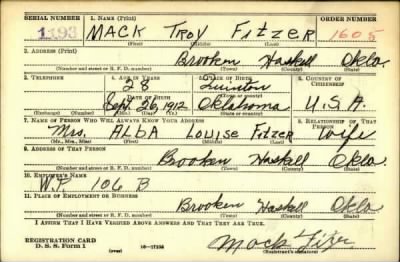 SERIAL NUMBER 1. NAME (Print) ORDER NUMBER
1193 MACK TROY FITZER 1605
(First) (Middle) (Last)
2. ADDRESS (Print)
Brooken Haskell Okla.
(Number and street or R. F. D. number) (Town) (County) (State)
3. TELEPHONE 4. AGE IN YEARS 5. PLACE OF BIRTH 6. COUNTRY OF CITIZENSHIP
28 Quinton
(Town or county)
DATE OF BIRTH
Sept. 26, 1912 Oklahoma U.S.A.
(Mo.) (Day) (Yr.) (State or country)
7. NAME OF PERSON WHO WILL ALWAYS KNOW YOUR ADDRESS 8. RELATIONSHIP OF THAT PERSON
Mrs. ALBA LOUISE FITZER Wife
(Mr., Mrs., Miss) (First) (Middle) (Last)
9. ADDRESS OF THAT PERSON
Brooken Haskell Okla
(Number and street or R. F. D. number) (Town) (County) (State)
10. EMPLOYER'S NAME
W.P. 106 B
11. PLACE OF EMPLOYMENT OR BUSINESS
Brooken Haskell Okla
(Number and street or R. F. D. number) (Town) (County) (State)
I AFFIRM THAT I HAVE VERIFIED ABOVE ANSWERS AND THAT THEY ARE TRUE.
REGISTRATION CARD
D. S. S. Form 1 (over) 16-17105 Mack
(Registrant's signature)